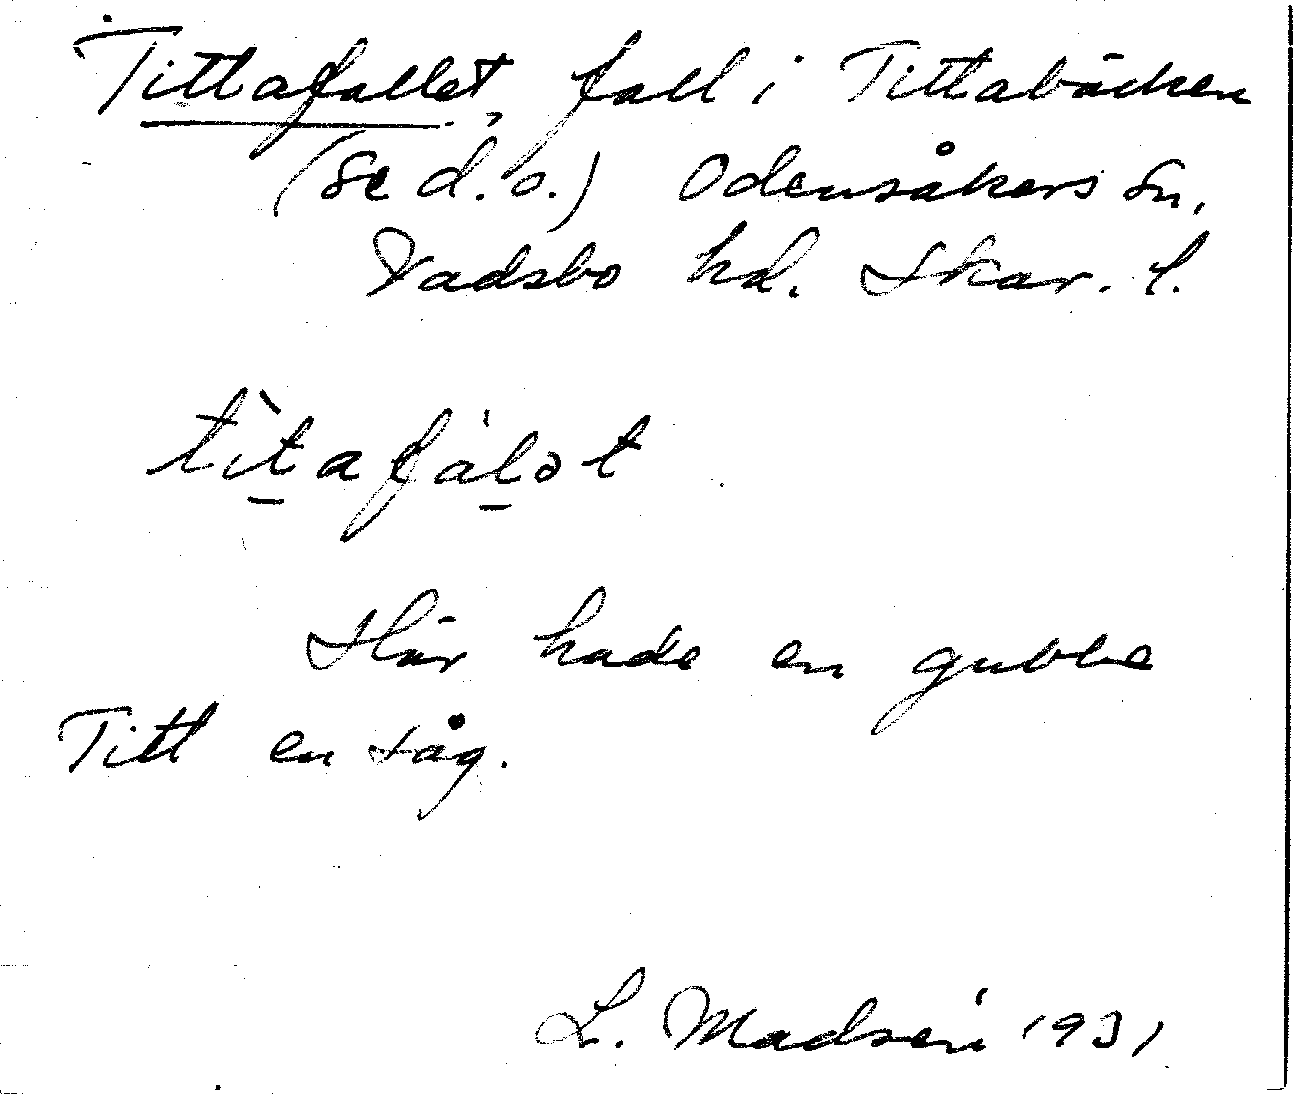 Tittafallet, fall i Tittabäcken
(se d. o.) Odensåkers sn,
Vadsbo hd. Skar. l.
tìtafálət
Här hade en gubbe
Titt en såg.
L. Madsén 1931